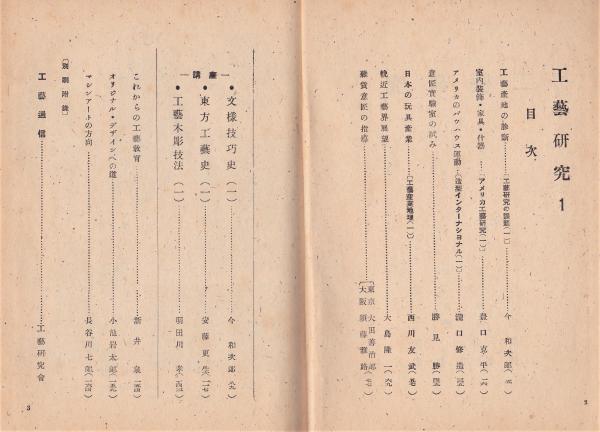 工藝研究 1
目次
工藝産地の診断……工藝研究の課題(一)……今 和次郎
室内装飾・家具・什器……アメリカ工藝研究(一)……豊口克平
アメリカのバウハウス運動……造型インターナショナル(一)……瀧口修造
意匠實驗室の試み……勝見 勝
日本の玩具産業……〔工藝産業地理(一)〕……西川友武
最近工藝界展望……大島隆一
雜貨意匠の指導……〔東京 太田善治郎
大阪 須藤雅路〕
2
―講座―
●文様技巧史(一)……今 和次郎
●東方工藝史(一)……安藤更生
●工藝木彫技法(一)……羽田川 孝
これからの工藝教育……新井 泉
オリジナル・デザインへの道……小池岩太郎
マシンアートの方向……長谷川七郎
〔別刷附錄〕
工藝通信……工藝研究會
3